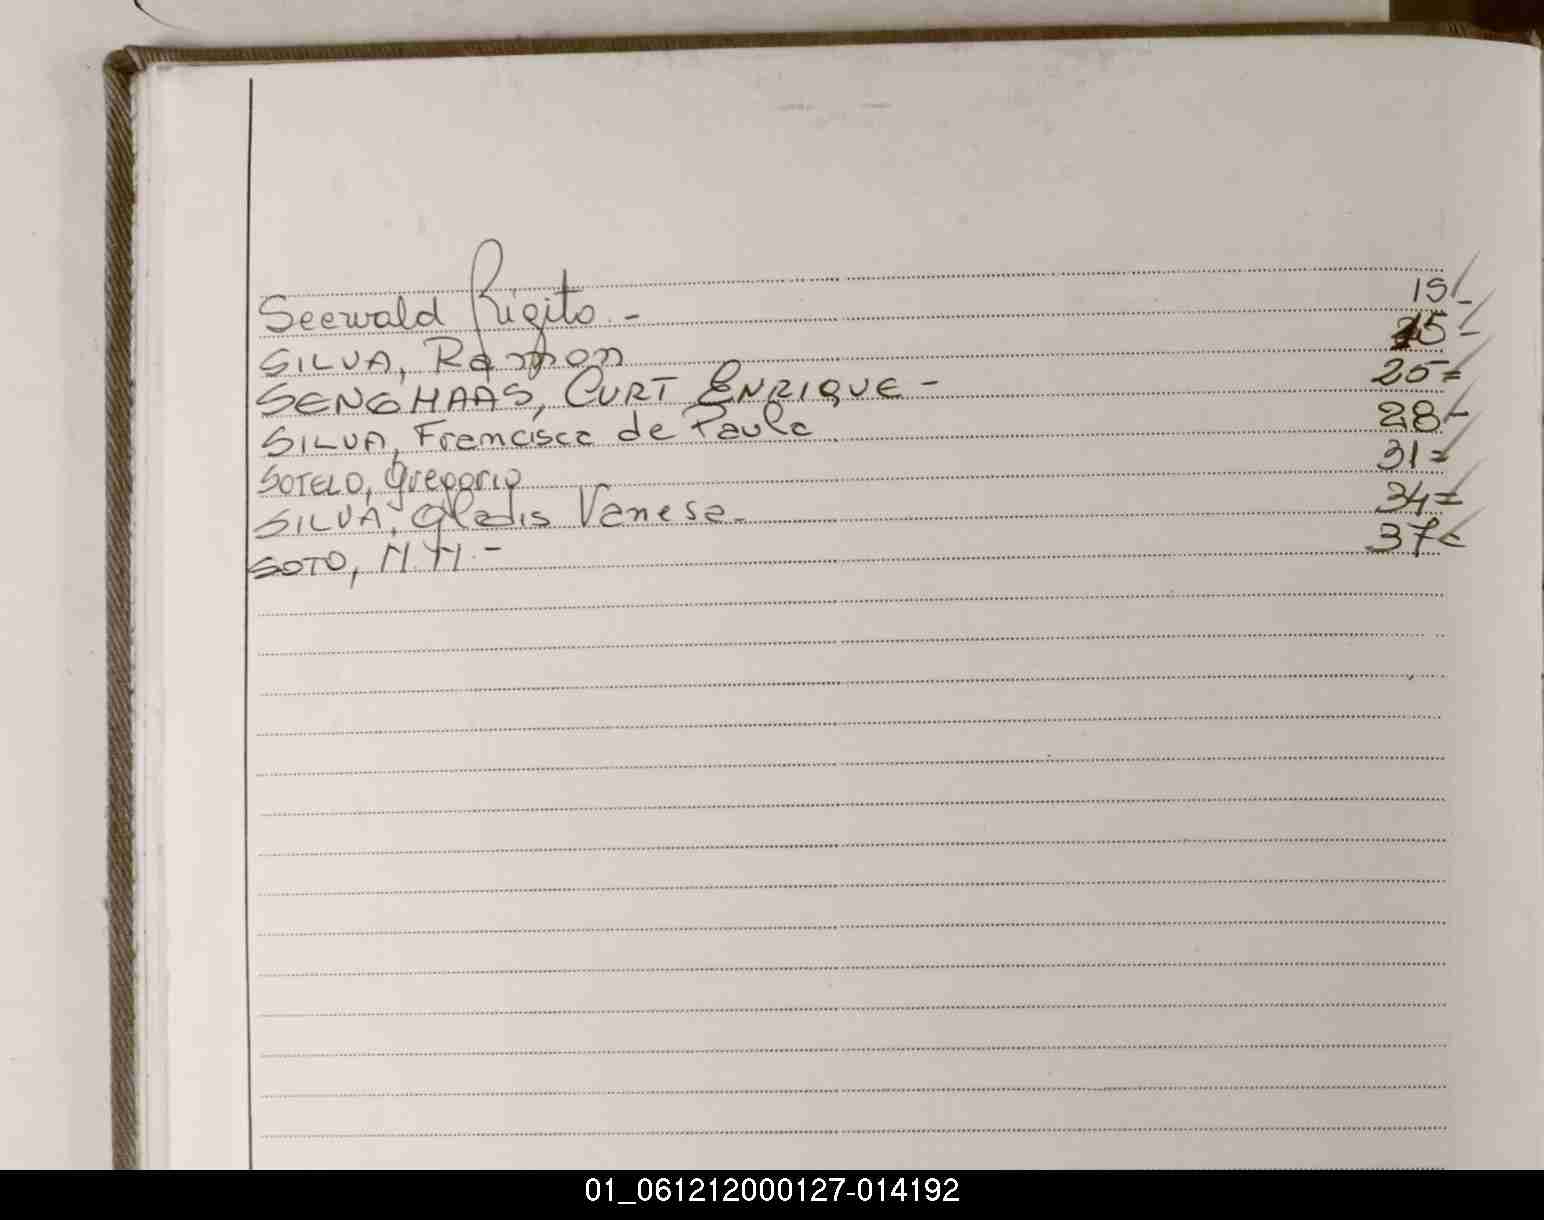 Seewald Rigito.- 15/-
SILVA, Ramon 15-
SENGHAAS, CURT ENRIQUE - 25=
SILVA, Francisca de Paula 28-
SOTELO, Gregorio 31=
SILVA, Gladis Vanesa.- 34=
SOTO, N.N.- 37=
01_061212000127-014192